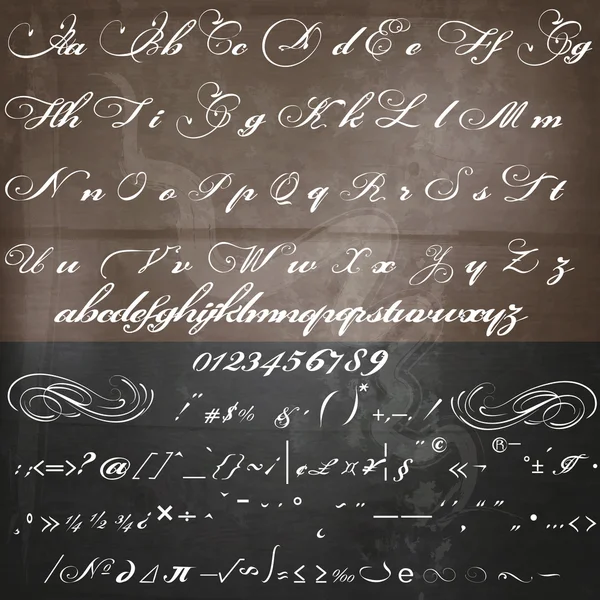 Aa Bb Cc D d E e Ff Gg
Hh I i G g K k L l M m
N n O o P p Q q R r S s T t
U u V v W w X x Y y Z z
abcdefghijklmnopqrstuvwxyz
0123456789
! " # $ % & ' ( ) * + , – . /
: ; < = > ? @ [ / ] ^ _ ` { } ~ ¡ | ¢ £ ¤ ¥ ¦ § ¨ © « ¬ ® ¯ ° ± ´ ¶ ·
¸ º » ¼ ½ ¾ ¿ × ÷ ˆ ˇ ˉ ˘ ˙ ˚ ˛ ˜ ˝ – — ‘ ’ ‚ “ ” „ • … ‹ ›
/ № ∂ ∆ π – √ ∞ ∫ ≈ ≤ ≥ ‰ e ∞ ∞ ~ –